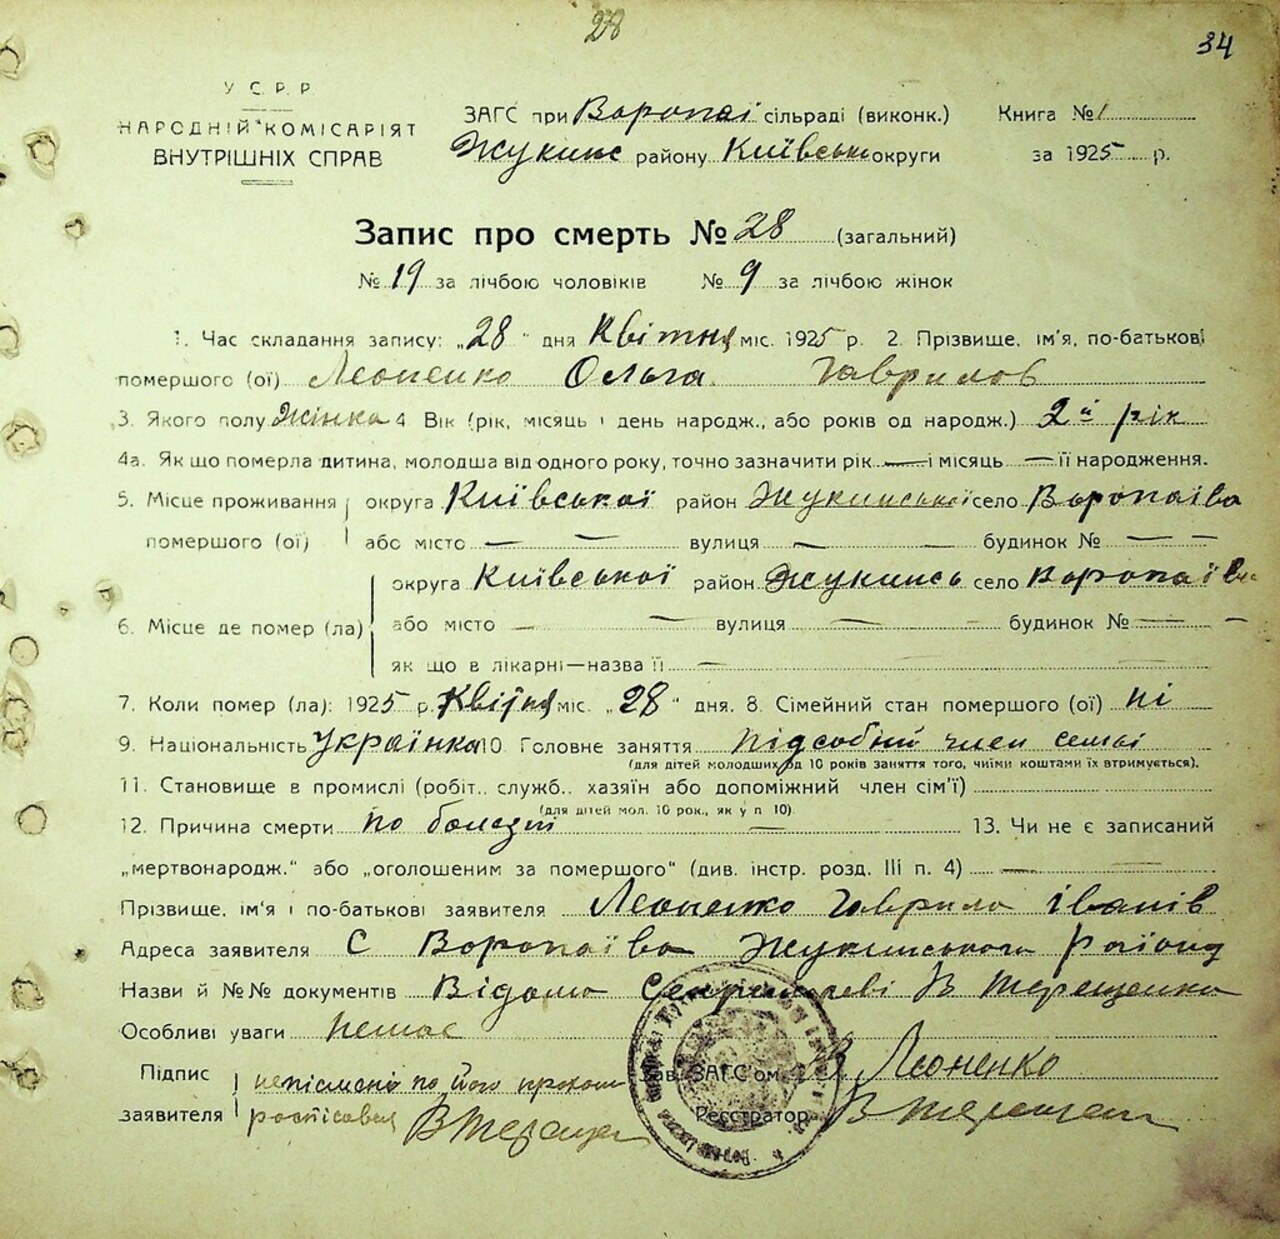 28
34
У С. Р. Р
НАРОДНІЙ КОМІСАРІЯТ
ВНУТРІШНІХ СПРАВ
ЗАГС при Воропаї сільраді (виконк.)
Жукинс району Київськ округи
Книга № 1
за 1925 р.
Запис про смерть № 28 (загальний)
№ 19 за лічбою чоловіків № 9 за лічбою жінок
1. Час складання запису: „28" дня Квітня міс. 1925 р. 2. Прізвище, ім'я, по-батькові
помершого (ої) Леоненко Ольга Гаврилов
3. Якого полу Жінка 4 Вік (рік, місяць і день народж., або років од народж.) 2й рік
4а. Як що померла дитина, молодша від одного року, точно зазначити рік — і місяць — її народження.
5. Місце проживання округа Київської район Жукинської село Воропаїва
помершого (ої) або місто — — вулиця — — будинок № — —
округа Київської район Жукинсь село Воропаїв
6. Місце де помер (ла) або місто — — вулиця — — будинок № — —
як що в лікарні—назва її —
7. Коли помер (ла): 1925 р. Квітня міс. „28" дня. 8. Сімейний стан помершого (ої) ні
9. Національність Українка 10. Головне заняття підсобний член семьї
(для дітей молодших од 10 років заняття того, чиїми коштами їх втримується).
11. Становище в промислі (робіт., служб., хазяїн або допоміжний член сім'ї)
(для дітей мол. 10 рок., як у п 10)
12. Причина смерти по болезни — 13. Чи не є записаний
„мертвонародж." або „оголошеним за помершого" (див. інстр. розд. III п. 4) — —
Прізвище, ім'я і по-батькові заявителя Леоненко Гаврило Іванів
Адреса заявителя С Воропаїва Жукинського району
Назви й №№ документів Відомо Секретареві В Терещенко
Особливі уваги немає
Підпис неписмені по його прохан
заявителя росписався В Терещен
Зав. ЗАГС'ом Леоненко
Реєстратор В Терещен